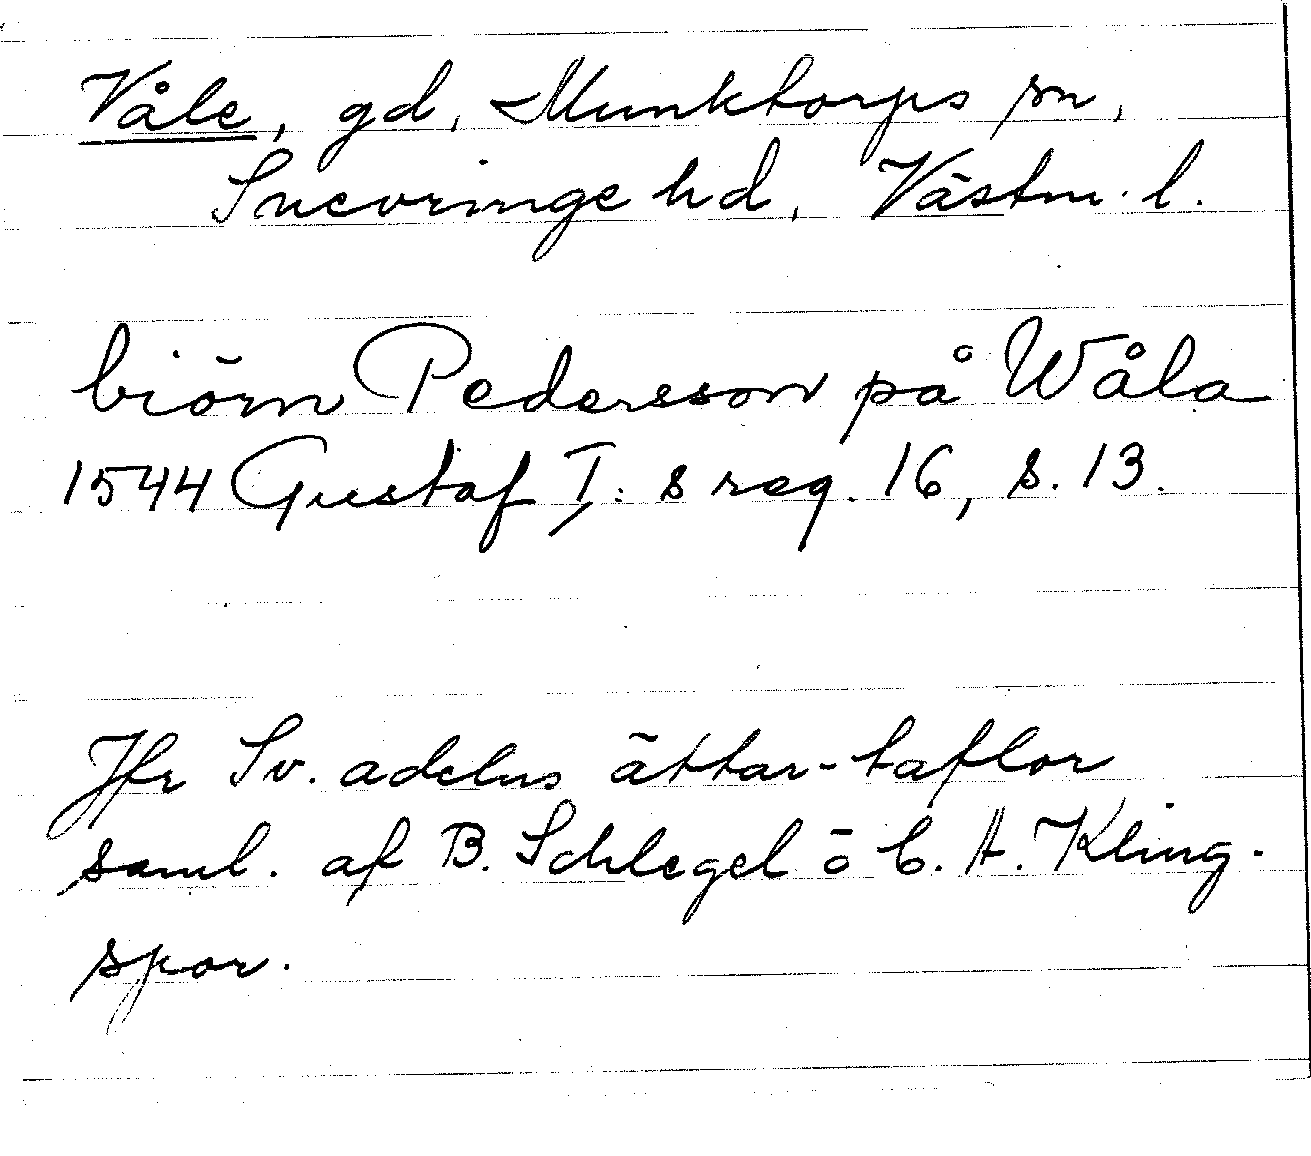 Våle, gd, Munktorps sn,
Snevringe hd, Västm. l.
biörn Pedersson på Wåla
1544 Gustaf I: s reg. 16, s. 13.
Jfr Sv. adelns ättar-taflor
saml. af B. Schlegel o C. A. Kling-
spor.